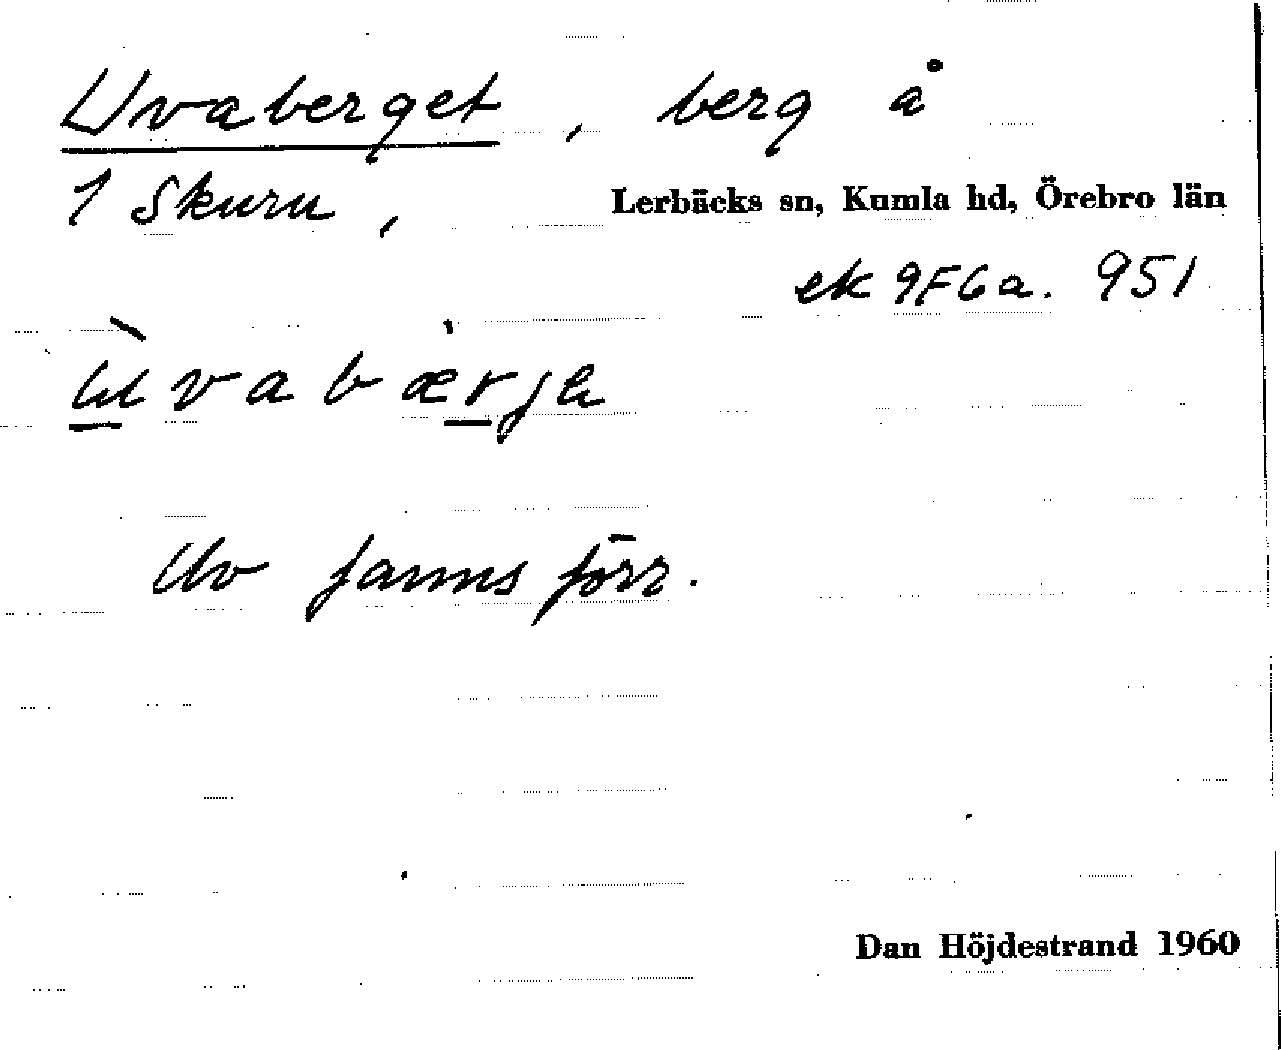 Uvaberget, berg å
1 Skuru, Lerbäcks sn, Kumla hd, Örebro län
ek 9F6a. 951
Uv fanns förr.
Dan Höjdestrand 1960